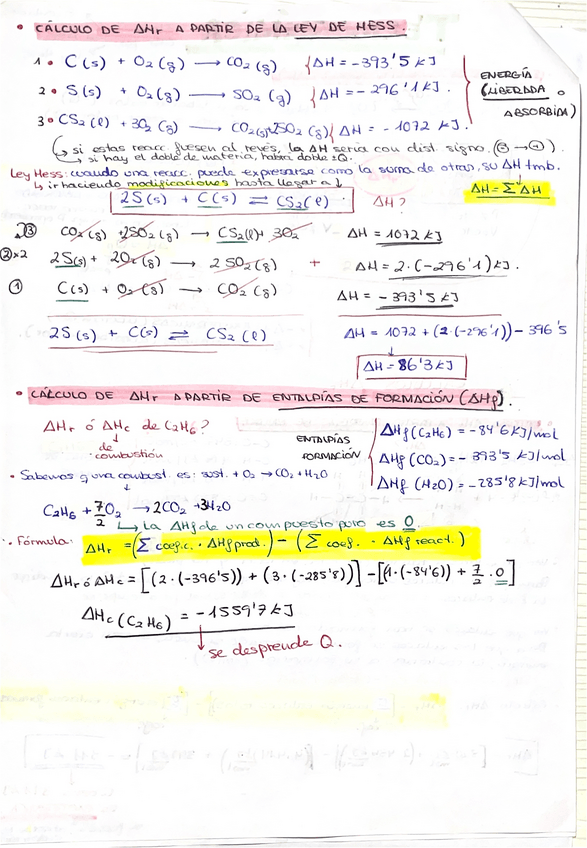 • CÁLCULO DE ΔHr A PARTIR DE LA LEY DE HESS.
1• C(s) + O2(g) → CO2(g) {ΔH = -393'5 kJ
2• S(s) + O2(g) → SO2(g) {ΔH = -296'1 kJ.
3• CS2(l) + 3O2(g) → CO2(g)+2SO2(g) {ΔH = -1072 kJ.
ENERGÍA
(LIBERADA o
ABSORBIDA)
↳ si estas reacc. fuesen al revés, la ΔH sería con dist. signo. (⊖→⊕).
↳ si hay el doble de materia, habrá doble Q.
Ley Hess: cuando una reacc. puede expresarse como la suma de otras, su ΔH tmb.
↳ ir haciendo modificaciones hasta llegar a ↓
ΔH = Σ ΔH
2S(s) + C(s) ⇌ CS2(l) ΔH?
③ CO2(g) + 2SO2(g) → CS2(l) + 3O2 ΔH = 1072 kJ
②×2 2S(s) + 2O2(g) → 2SO2(g) + ΔH = 2·(-296'1) kJ.
① C(s) + O2(g) → CO2(g) ΔH = -393'5 kJ
2S(s) + C(s) ⇌ CS2(l) ΔH = 1072 + (2·(-296'1)) - 396'5
ΔH = 86'3 kJ
• CÁLCULO DE ΔHr A PARTIR DE ENTALPÍAS DE FORMACIÓN (ΔHf).
ΔHr ó ΔHc de C2H6?
↓
de
combustión
ENTALPÍAS
FORMACIÓN
ΔHf (C2H6) = -84'6 kJ/mol
ΔHf (CO2) = -393'5 kJ/mol
ΔHf (H2O) = -285'8 kJ/mol
• Sabemos q una combust. es: sust. + O2 → CO2 + H2O
C2H6 + 7/2 O2 → 2CO2 + 3H2O
↳ La ΔHf de un compuesto puro es 0.
• Fórmula: ΔHr = (Σ coefic. · ΔHf prod.) - (Σ coef. · ΔHf react.)
ΔHr ó ΔHc = [(2·(-396'5)) + (3·(-285'8))] - [(1·(-84'6)) + 7/2 · 0]
ΔHc (C2H6) = -1559'7 kJ
↓ se desprende Q.